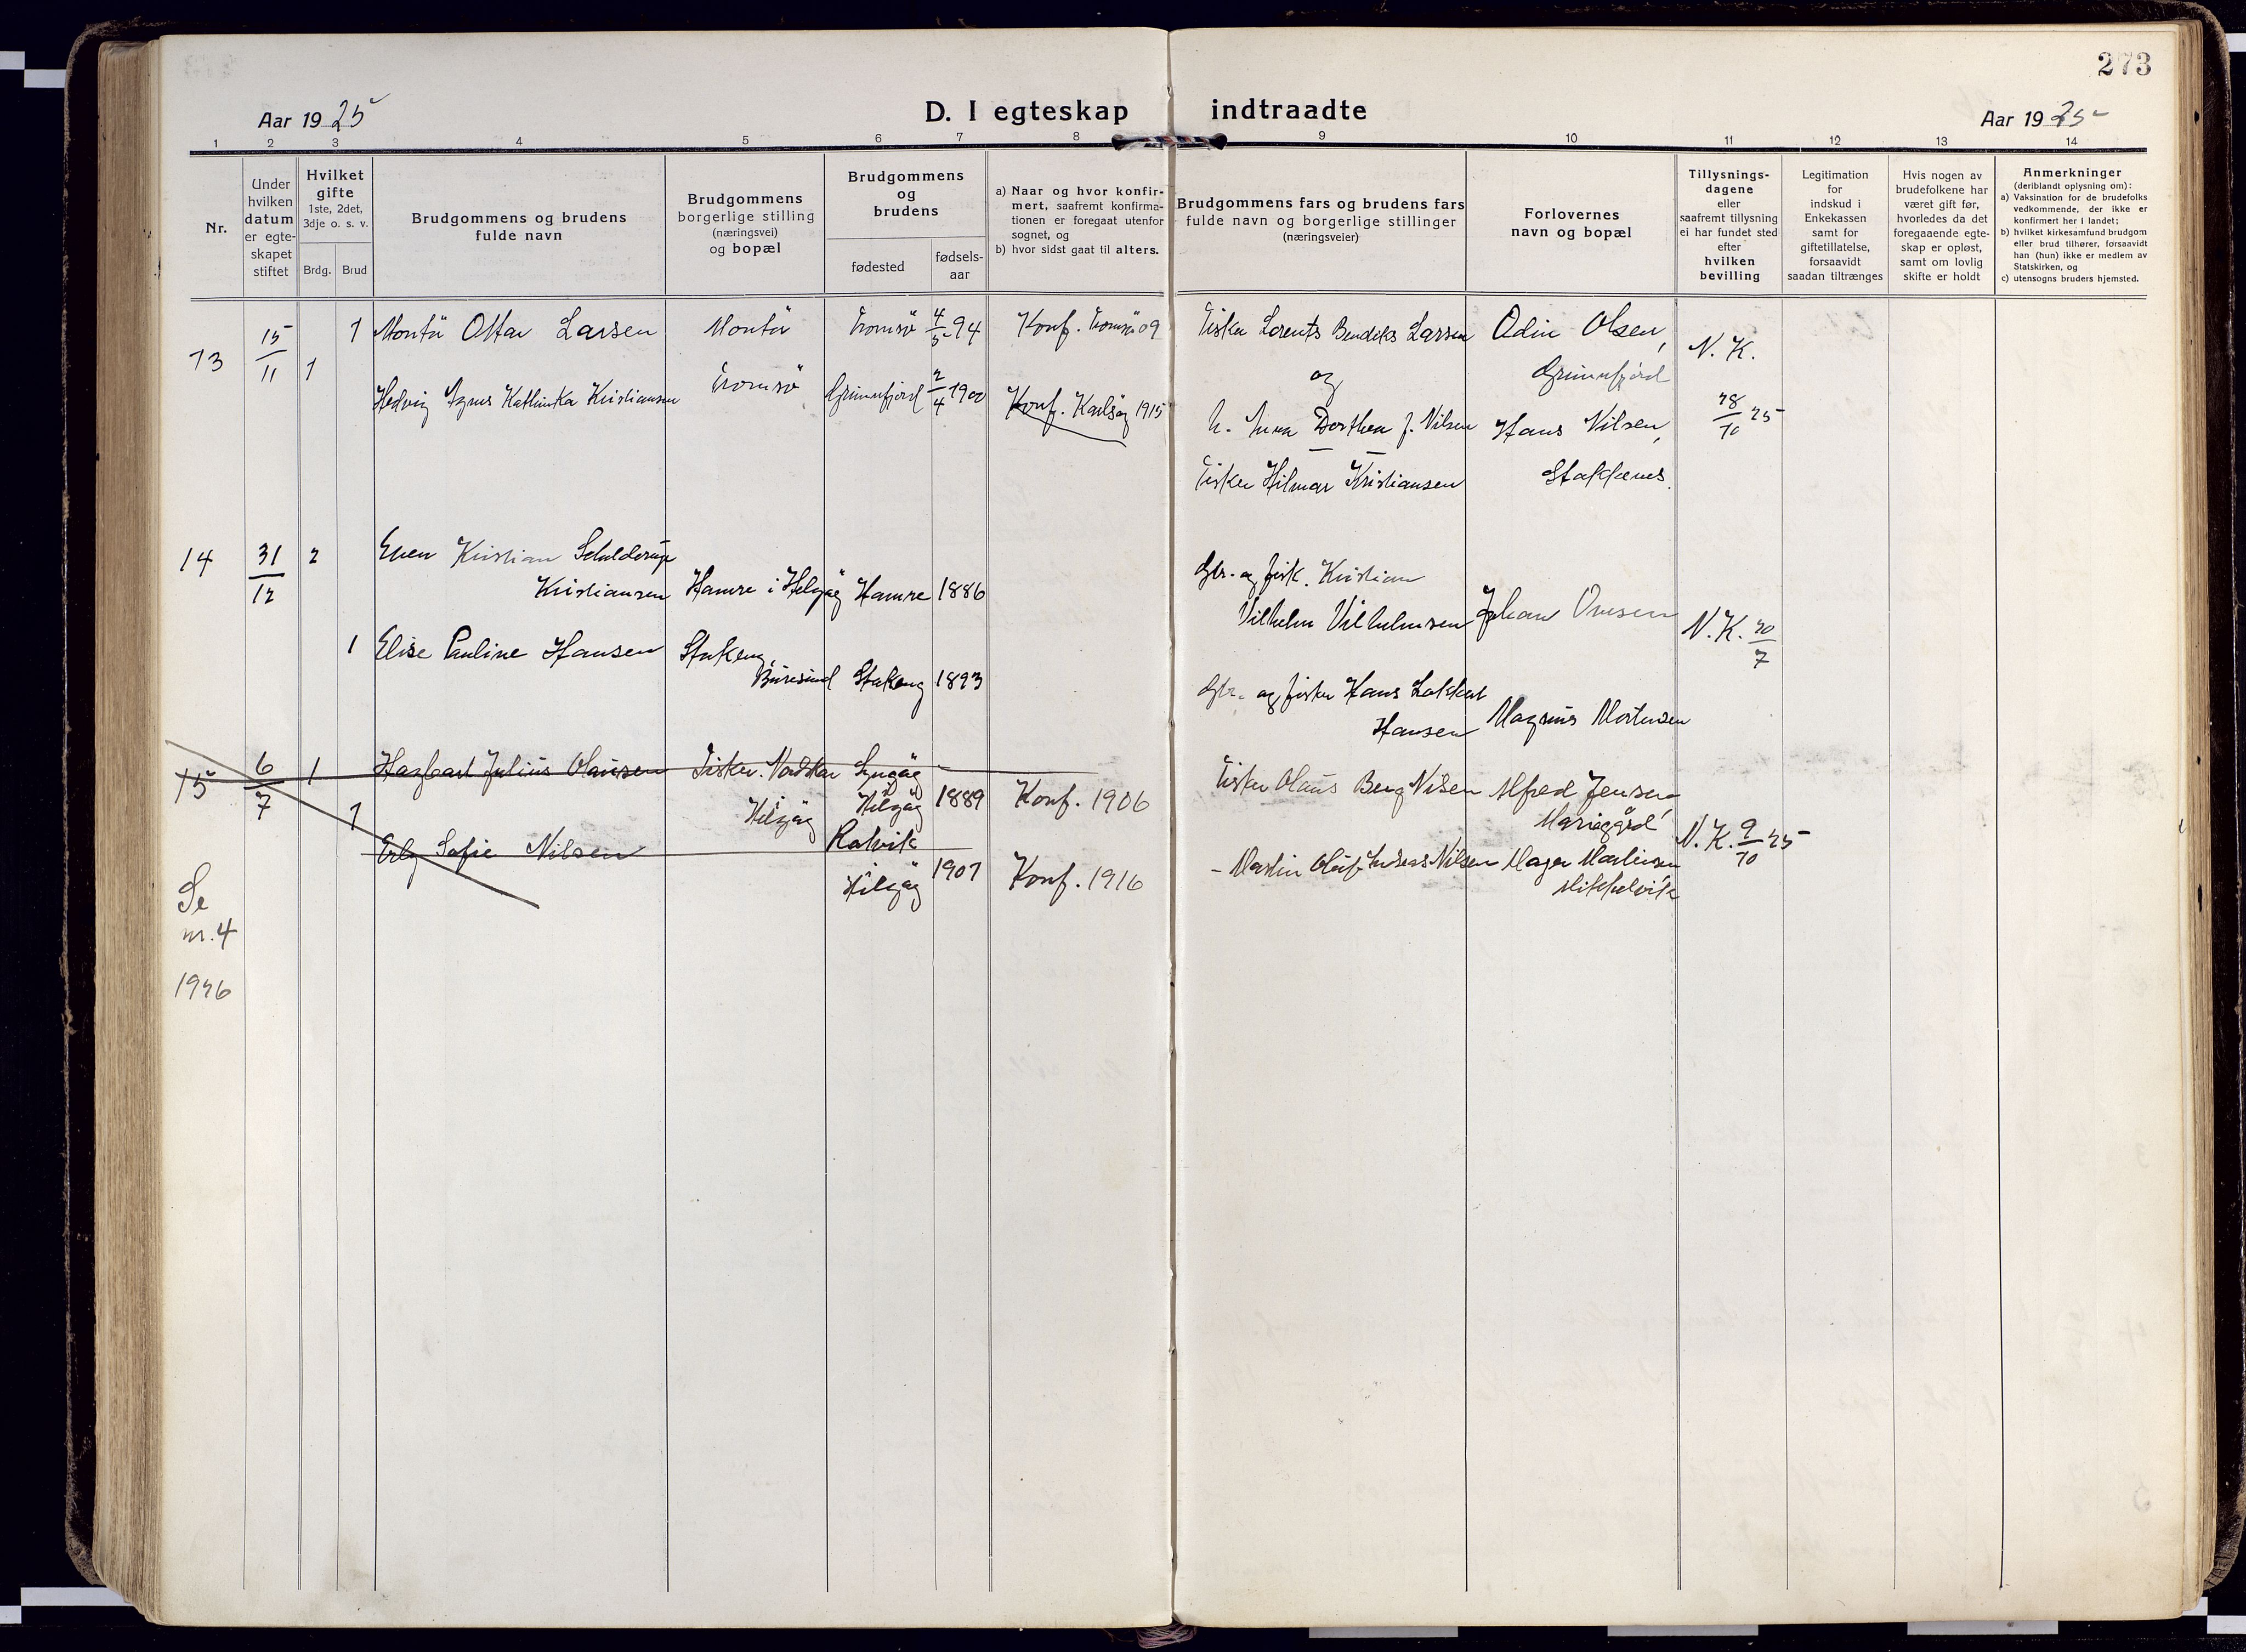 273
Aar 1925
D. I egteskap indtraadte
Aar 1925
1 2 3 4 5 6 7 8 9 10 11 12 13 14
Nr.
Under hvilken datum er egteskapet stiftet
Hvilket gifte
1ste, 2det, 3dje o. s. v.
Brdg. Brud
Brudgommens og brudens fulde navn
Brudgommens borgerlige stilling (næringsvei) og bopæl
Brudgommens og brudens
fødested
fødsels-aar
a) Naar og hvor konfirmert, saafremt konfirmationen er foregaat utenfor sognet, og
b) hvor sidst gaat til alters.
Brudgommens fars og brudens fars fulde navn og borgerlige stillinger (næringsveier)
Forlovernes navn og bopæl
Tillysningsdagene eller saafremt tillysning ei har fundet sted efter hvilken bevilling
Legitimation for indskud i Enkekassen samt for giftetillatelse, forsaavidt saadan tiltrænges
Hvis nogen av brudefolkene har været gift før, hvorledes da det foregaaende egteskap er opløst, samt om lovlig skifte er holdt
Anmerkninger
(deriblandt oplysning om):
a) Vaksination for de brudefolks vedkommende, der ikke er konfirmert her i landet;
b) hvilket kirkesamfund brudgom eller brud tilhører, forsaavidt han (hun) ikke er medlem av Statskirken, og
c) utensogns bruders hjemsted.
13 15/11 1 1
Montör Ottar Larsen
Montör
Tromsö
Tromsö 4/5 94
Konf. Tromsö 09
Hedvig Agnes Kathinka Kristiansen
Grunnfjord 2/4 1900
Konf. Karlsöy 1915
Fisker Lorents Bendiks Larsen
og
h. Anna Dorthea f. Nilsen
Fisker Hilmar Kristiansen
Odin Olsen,
Grunnfjord
Hans Nilsen,
Stakkenes.
N. K.
28/10 25
14 31/12 2
Even Kristian Schulderup
Kristiansen
Hamre i Helgöy
Hamre 1886
1 Elise Pauline Hansen
Stakeng,
Burösund
Stakeng 1893
Gbr. og fisk. Kristian
Vilhelm Vilhelmsen
Gbr. og fisker Hans
Hansen
Johan
Magnus Mortensen
N. K. 20/7
15 6/7 1
Hagbart Julius Olausen
Fisker. Nordskar
Helgöy
Lyngöy
Helgöy 1889
Konf. 1906
1
Erly Sofie Nilsen
Ratvik
Helgöy 1901
Konf. 1916
Fisker Olaus Berg Nilsen
- Martin Olaf Andreas Nilsen
Alfred Jensen
Mariegård
Hagen Martinsen
Mikkelvik
N. K. 9/10 25
Se
nr. 4
1926